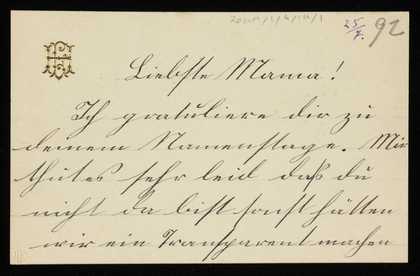 25/7.
92
Liebste Mama!
Ich gratuliere dir zu
deinem Namenstage. Mir
thut es sehr leid daß du
nicht da bist sonst hätten
wir ein Transparent machen